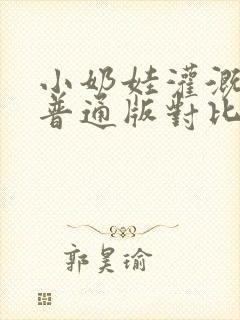 小奶娃灌溉
普通版對比
郭昊瑜